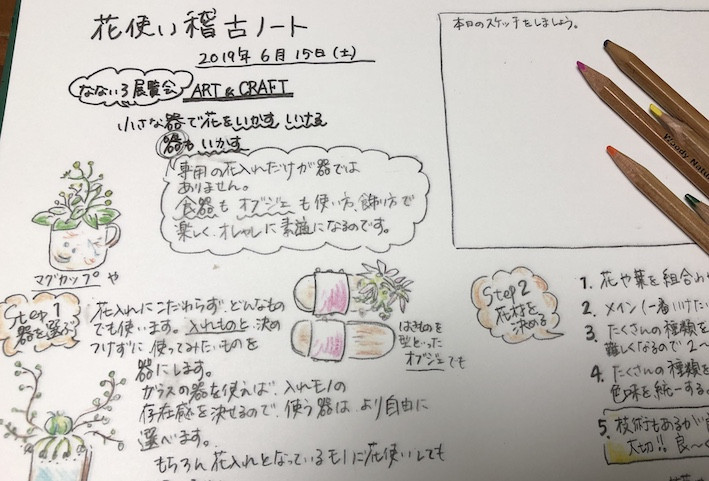 花使い稽古ノート
2019年6月15日(土)
なないろ展覧会 ART & CRAFT
小さな器で花をいかす いける
器もいかす
専用の花入れだけが器では
ありません。
食器もオブジェも使い方、飾り方で
楽しく、オシャレに素適になるのです。
マグカップや
Step 1
器を選ぶ
花入れにこだわらず、どんなもの
でも使います。入れものと決め
つけずに使ってみたいものを
器にします。
ガラスの器を使えば、入れモノの
存在感を決せるので、使う器は、より自由に
選べます。
もちろん花入れとなっているモノに花使いしても
はきものを
型どった
オブジェでも
本日のスケッチをしましょう。
Woody Natu
Step 2
花材を
決める
1. 花や葉を組合わ
2. メイン(一番いけたい
3. たくさんの種類を
難しくなるので2〜
4. たくさんの種類を
色味を統一する。
5. 技術もあるが
大切!! 良〜く